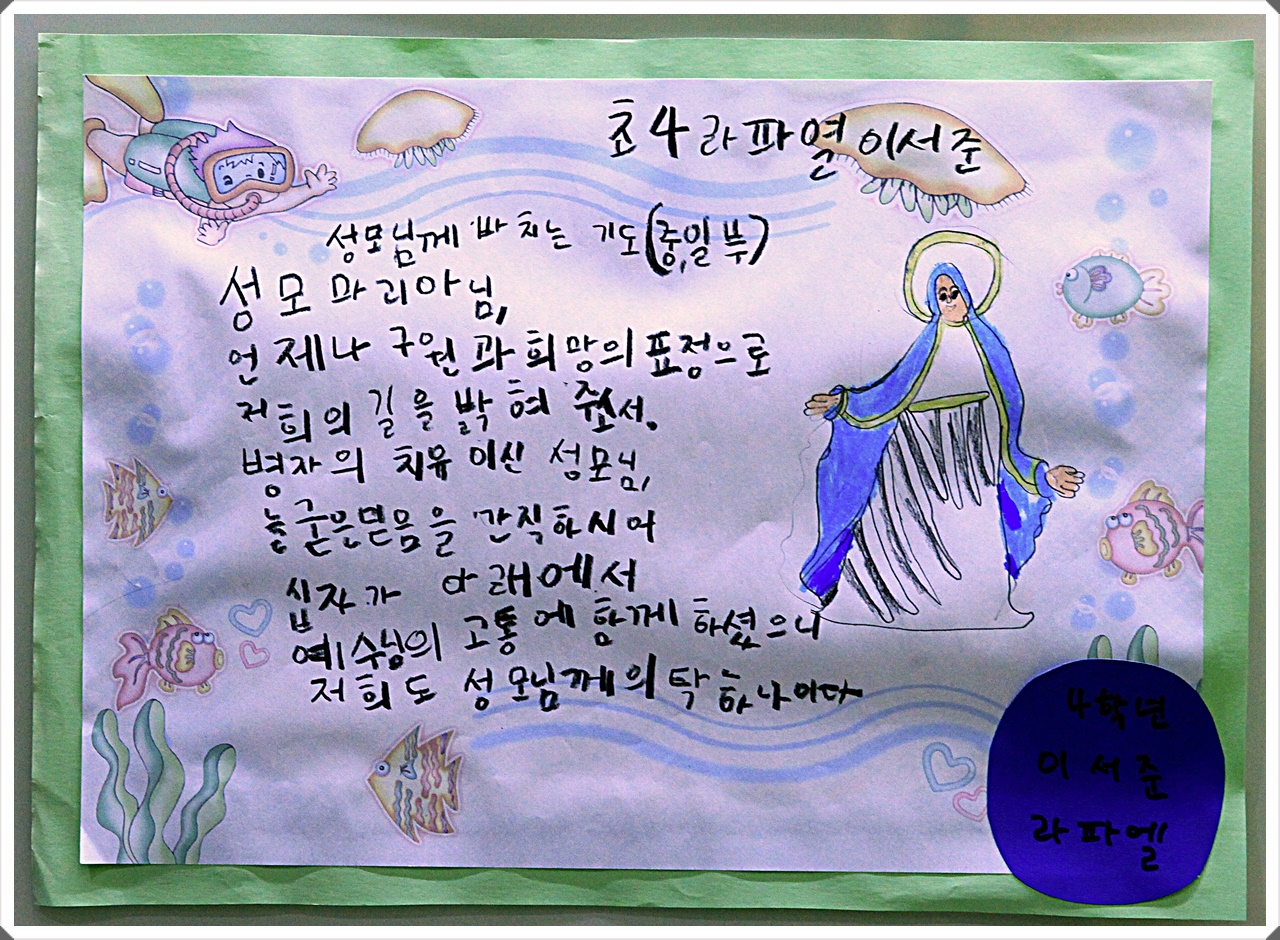 초4 라파엘 이서준
성모님께 바치는 기도(중,일부)
성모 마리아님,
언제나 구원과 희망의 표정으로
저희의 길을 밝혀 주소서.
병자의 치유이신 성모님,
굳은믿음을 간직하시어
십자가 아래에서
예수님의 고통에 함께 하셨으니
저희도 성모님께 의탁하나이다
4학년
이서준
라파엘